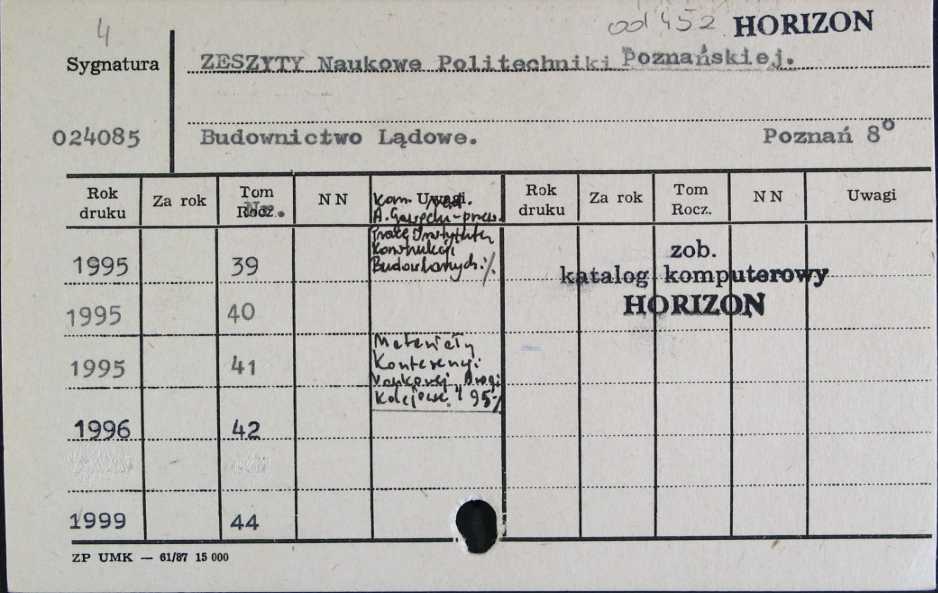 4
od 452 HORIZON
Sygnatura
ZESZYTY Naukowe Politechniki Poznańskiej.
024085
Budownictwo Lądowe. Poznań 8°
Rok druku Za rok Tom Rocz. Nr. N N Uwagi. Rok druku Za rok Tom Rocz. N N Uwagi
Instytutu
Konstrukcji
1995 39 Budowlanych:/.
zob.
katalog komputerowy
HORIZON
1995 40
Materiały
1995 41 Konferencji
Naukowej Drogi
Kolejowe. 95/
1996 42
1999 44
ZP UMK — 61/87 15 000